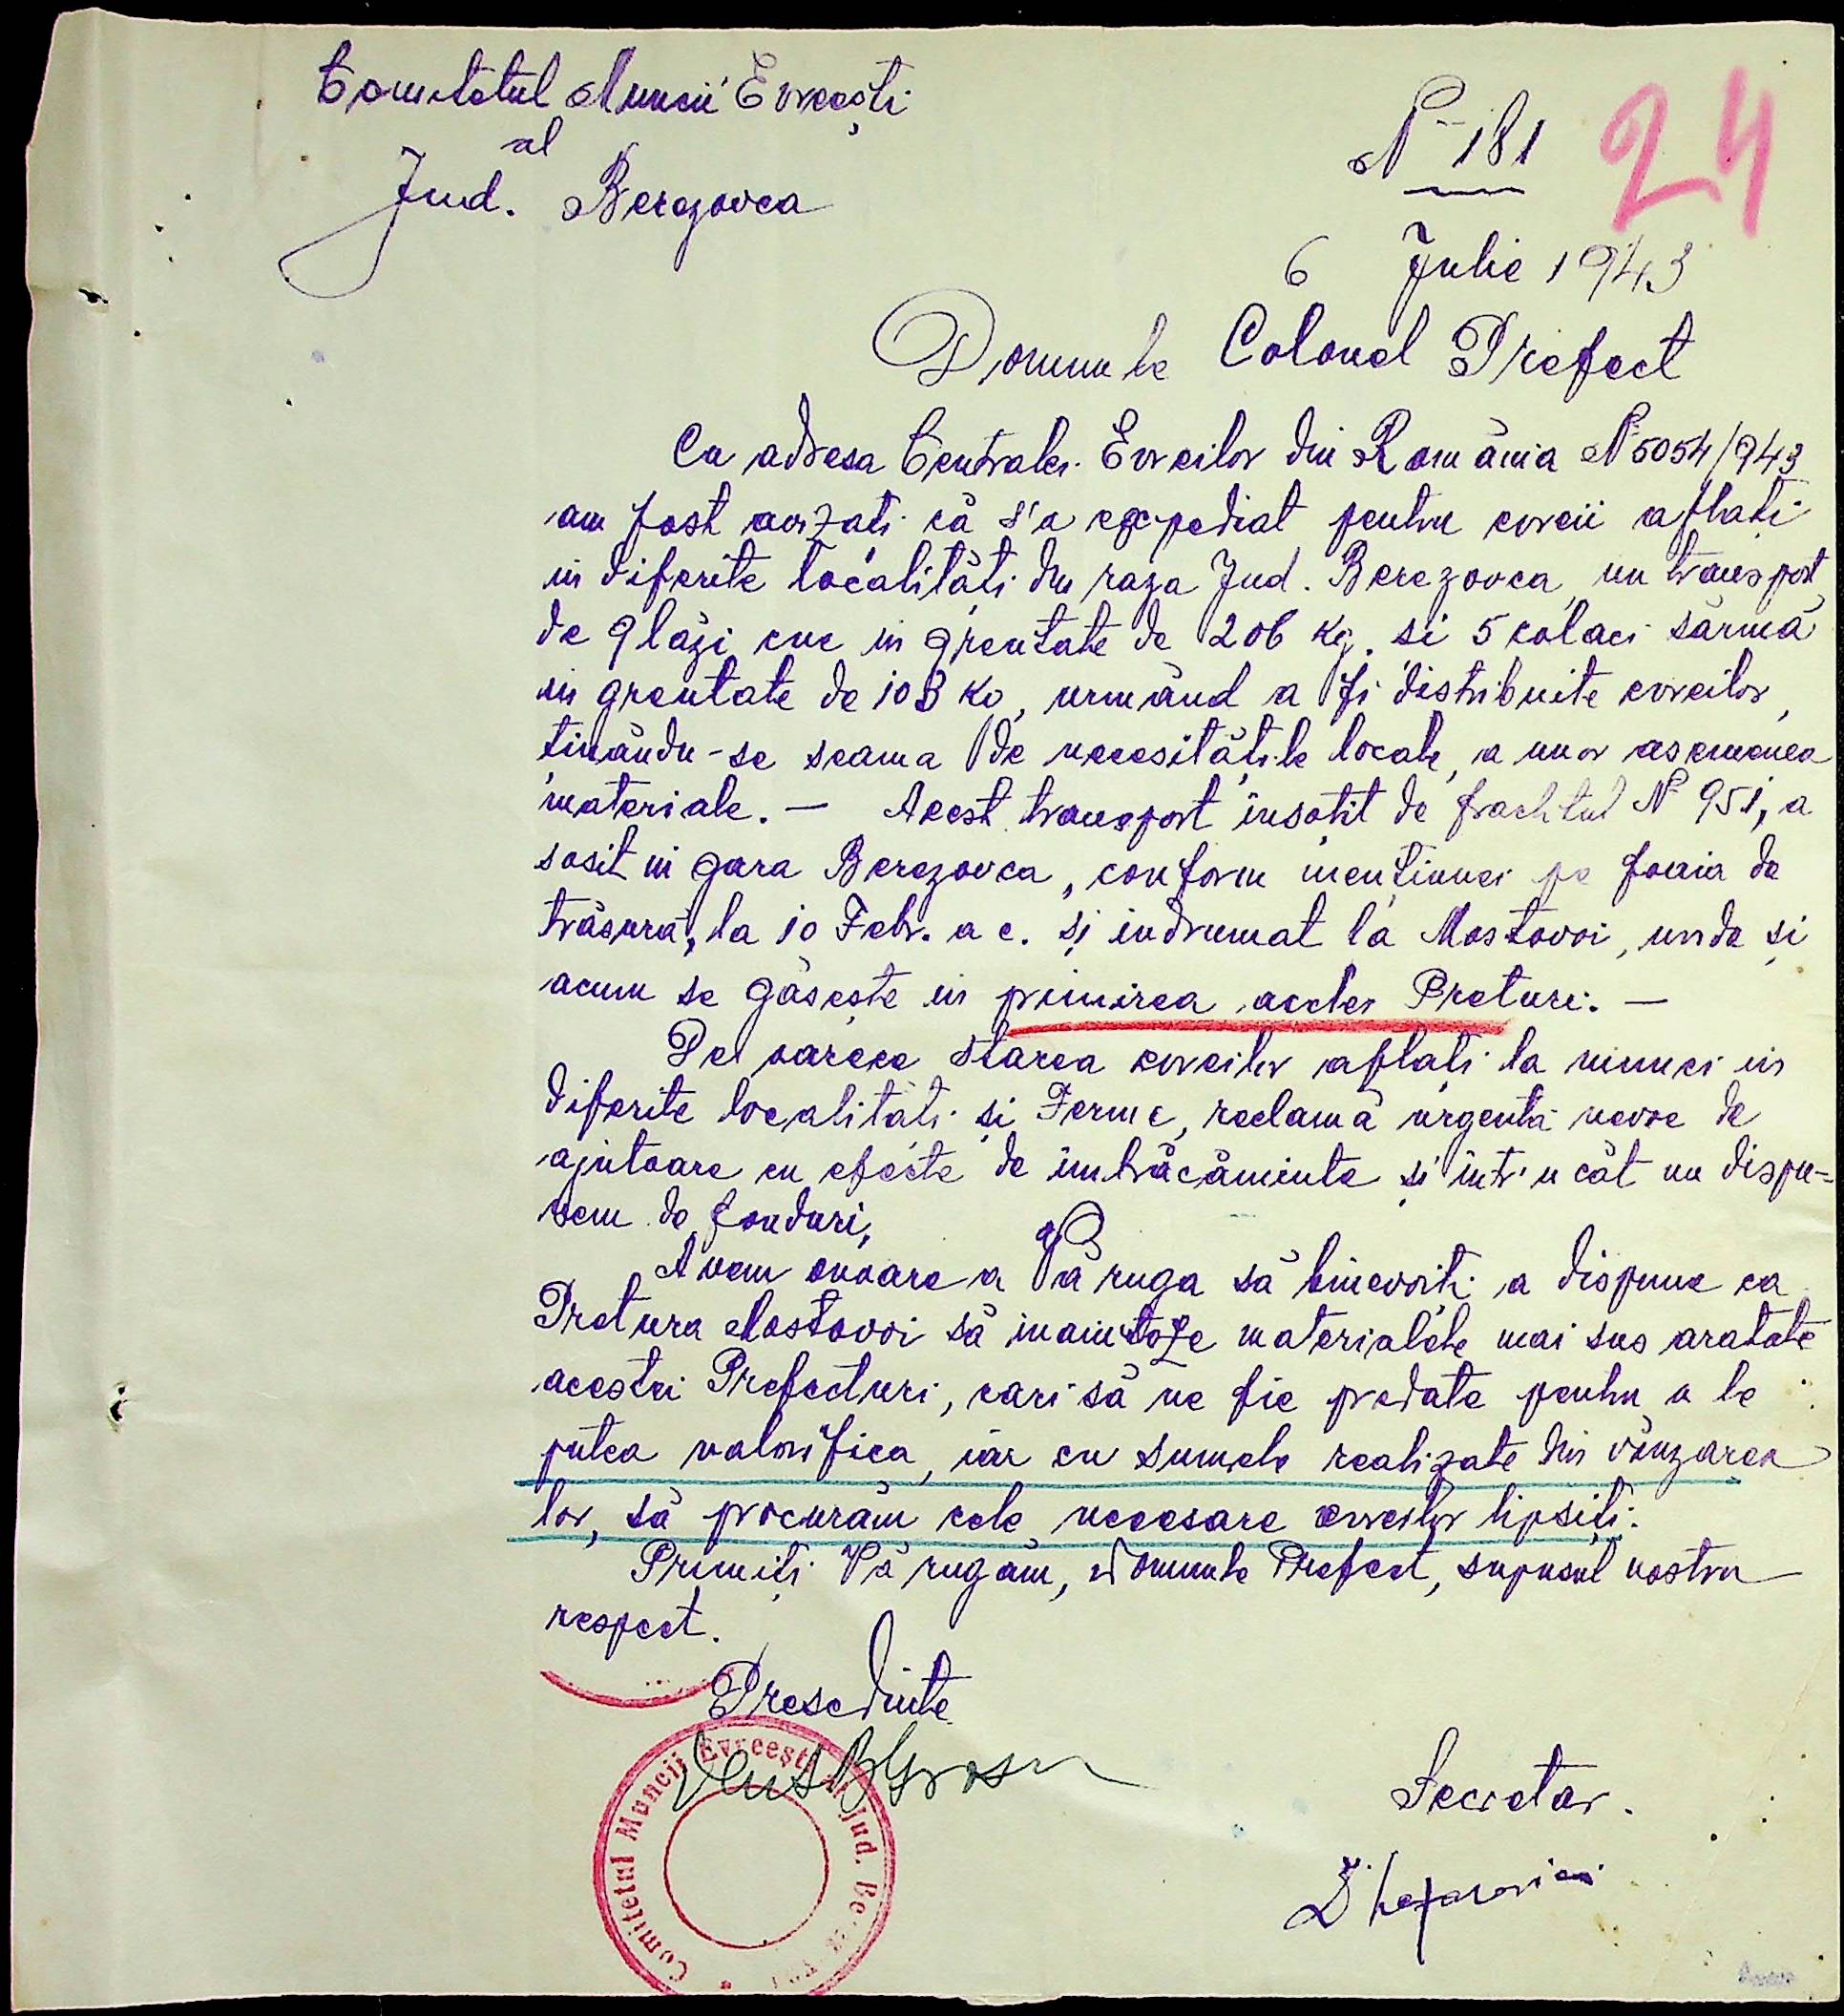 Comitetul Muncii Evreești
al
Jud. Berezovca
Nº 181
24
6 Julie 1943
Domnule Colonel Prefect
Cu adresa Centralei Evreilor din România Nº 5054/943
am fost avizați că s'a expediat pentru evreii aflați
in diferite localități din raza Jud. Berezovca, un transport
de 9 lăzi cue in greutate de 206 kg. si 5 colaci sârmă
in greutate de 103 ko, urmând a fi distribuite evreilor,
ținându-se seama de necesitățile locale, a unor asemenea
materiale. — Acest transport însoțit de frachtul Nº 951, a
sosit in gara Berezovca, conform mențiunei pe foaia de
trăsură, la 10 Febr. a c. și indrumat la Mostovoi, unde și
acum se găsește in primirea acelei Preturi. —
De oarece starea evreilor aflați la munci in
diferite localități și Ferme, reclamă urgentă nevoe de
ajutoare cu efecte de îmbrăcăminte și într'u cât nu dispu=
nem de fonduri,
Avem onoare a Vă ruga să binevoiți a dispune ca
Pretura Mostovoi să inainteze materialele mai sus aratate
acestei Prefecturi, cari să ne fie predate pentru a le
putea valorifica, iar cu sumele realizate din vânzarea
lor, să procurăm cele necesare evreilor lipsiți.
Primiți Vă rugăm, Domnule Prefect, supusul nostru
respect.
Presedinte
Secretar.
Comitetul Muncii Evreești al Jud. Be